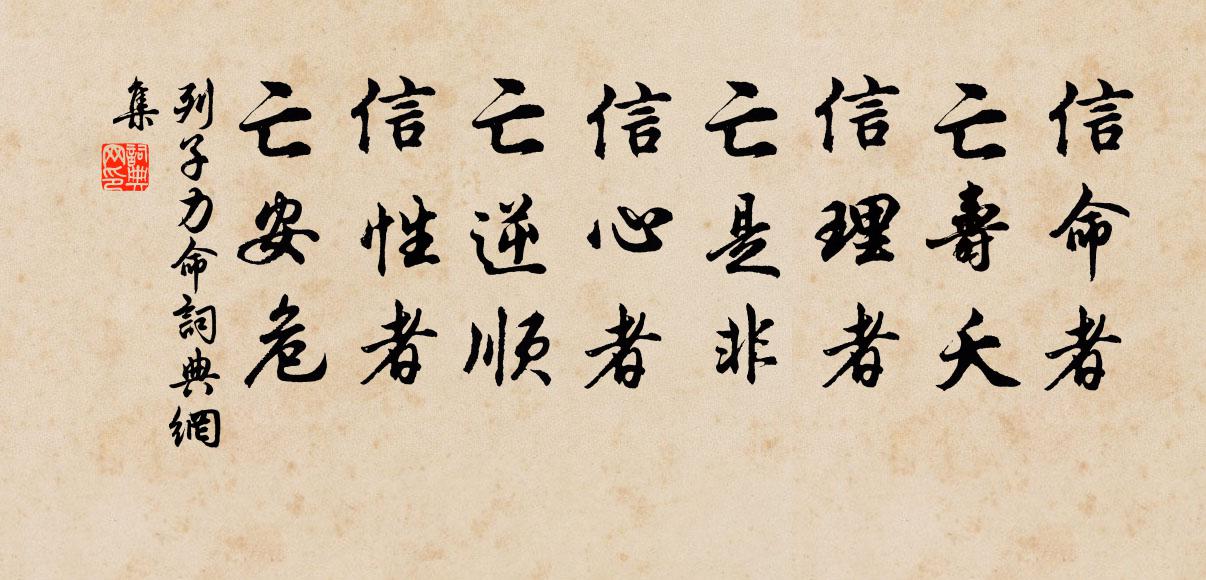 信命者
亡壽夭
信理者
亡是非
信心者
亡逆順
信性者
亡安危
列子力命詞典網
集
詞典
网印